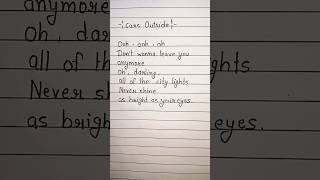 -:¦ Cars Outside ¦:-
Ooh - ooh - oh
Don't wanna leave you
anymore
Oh, darling,
all of the city lights
Never shine
as bright as your eyes.
anymore
Oh, da
all of
Never
as brigh
lights
eyes.